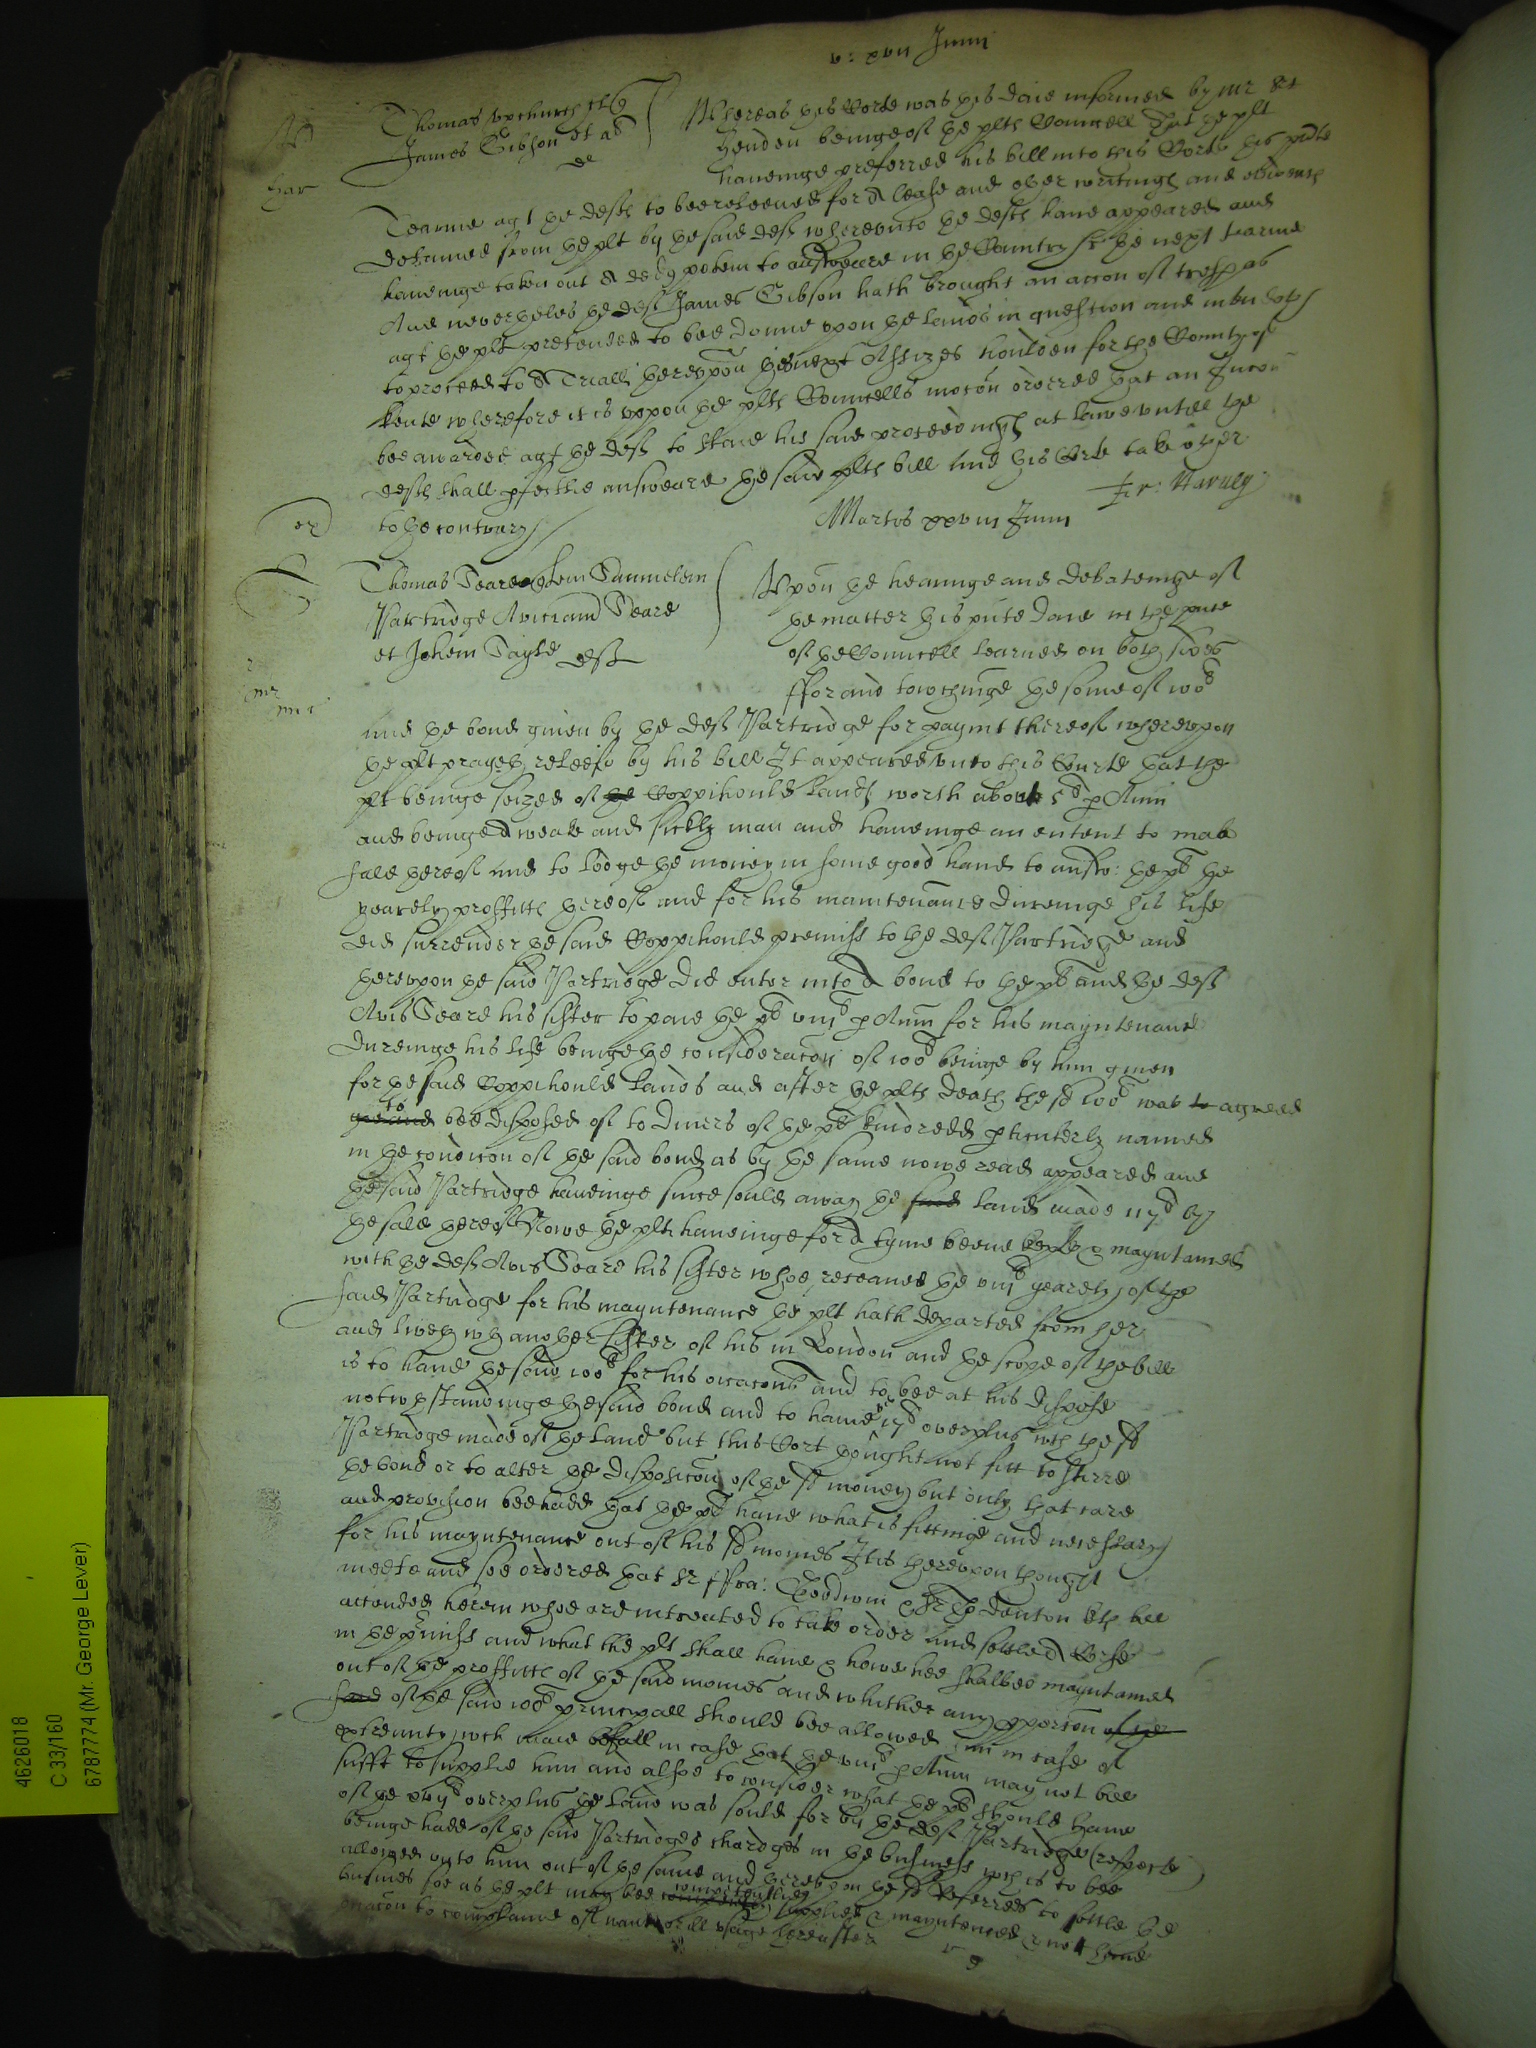 v: xxvii Junii
Thomas Upchurch plt
James Gibson et al
de
Whereas this Corte was this daie informed by mr
Henden beinge of the plts Councell That the plt
haveinge preferred his bill into this Corte this psente
Har
Tearme agt the defts to bee releeved for A lease and other writings and
detained from the plt by the said deft wherevnto the defts have appeared and
haveinge taken out A ded potem to answeare in the Countrey the next tearme
And neverthelesse the deft James Gibson hath brought an accon of trespas
agt the plt pretended to bee donne vpon the lands in question and intendeth
to proceed to A Triall therevpon the next Assizes houlden for the County of
Kente wherefore it is vppon the plts Councells mocon ordered that an Iniuncon
bee awarded agt the deft to staie his said proceedings at lawe vntill the
defts shall pfectlie answeare the said plts bill And this Corte take other
to the contrary
ex
Martis xxviii Junii
Thomas Teare
Partridge Avis and Teare
et Johem Tayle deft
Vpon the hearinge and debateinge of
the matter this psente daie in the psence
of the Councell learned on both sides
ffor and towchinge the some of 100l
and the bond given by the deft Partridge for paymt thereof wherevpon
the plt prayeth releefe by his bill It appeared vnto this Courte that the
plt beinge seized of the Coppihould lands worth about 5l p Ann
and beinge A weake and sickly man and haveinge an entent to make
sale thereof and to lodge the money in some good hand to answ: the plt the
yearely proffitts thereof and for his maintenance dureinge his life
did surrender the said Coppihould premiss to the deft Partridge and
therevpon the said Partridge did enter into A bond to the plt and the deft
Avis Teare his sister to paie the plt viiil p Annu for his mayntenance
dureinge his life beinge the consideracon of 100l beinge by him given
for the said Coppihould lands and after the plts death the sd 100l was to agreed
to bee disposed of to divers of the plts kindred pticulerly named
in the condicon of the said bond as by the same nowe read appeared and
the said Partridge haveinge since sould away the said lands made by
the sale thereof Nowe the plt haveinge for A tyme beene kept & mayntained
with the deft Avis Teare his sister whoe receaved the viiil yearely of the
said Partridge for his mayntenance the plt hath departed from her
and liveth wth another sister of his in London and the scope of the bill
is to have the said 100l for his occacons and to bee at his dispose
notwthstandinge the said bond and to have overplus wch the sd
Partridge made of the land but this Cort thought not fitt to stirre
the bond or to alter the disposicon of the sd money but only that care
and provision bee hadd that the plt have what is fittinge and necessary
for his mayntenance out of his sd monies It is therevpon thought
meete and soe ordered that Sr ffra: Goodwin & Sr Tho Denton kts bee
attended herein whoe are intreated to take order and settle A
in the pmisses and what the plt shall have & howe hee shalbee mayntained
out of the proffitts of the said monies and whither any pporcon of the
said of the said 100l principall should bee allowed him in case of
extremity wch maie befall in case that the viiil p Annu may not bee
sufft to supplie him and alsoe to consider what the plt should have
of the overplus the land was sould for by the deft Partridge (respecte
beinge hadd of the said Partridges chardges in the business wch is to bee
allowed vnto him out of the same) and therevpon the sd Referrees to settle the
busines soe as the plt may bee competentlie supplied & mayntened & not have
occacon to complaine of want or ill vsage hereafter
4626018
C 33/160
6787774 (Mr. George Lever)